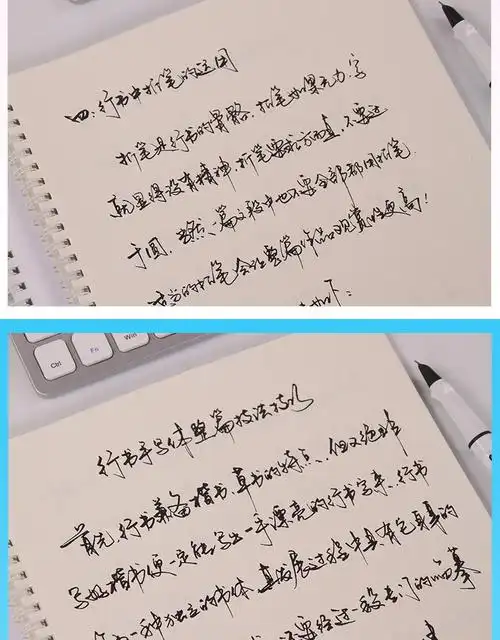 四.行书中折笔的运用
折笔是行书的骨骼.折笔如果无力.字
就显得没有精神.折笔要求方而直.不要过
于圆.当然.一篇文稿中也不要全部都用折笔.
适当的折笔会让整篇作品观赏性更高!
如下:
Ctrl
Fn
Win
行书字体整篇技法技巧
首先.行书兼备楷书、草书的特点.但又绝非
写好楷书便一定能写出一手漂亮的行书字来.行书
作为一种独立的书体.其发展过程中具有它自身的
要经过一段专门的临摹